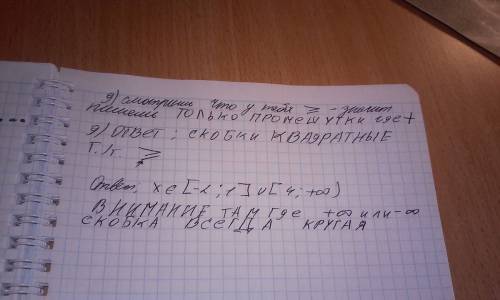 д) смотришь что у тебя ≥ - значит
пишешь ТОЛЬКО ПРОМЕЖУТКИ где +
Я) ОТВЕТ: СКОБКИ КВАДРАТНЫЕ
Т.к. ≥
Ответ, x ∈ [-2; 1] ∪ [4; +∞)
ВНИМАНИЕ ТАМ ГДЕ +∞ ИЛИ -∞
СКОБКА ВСЕГДА КРУГЛАЯ